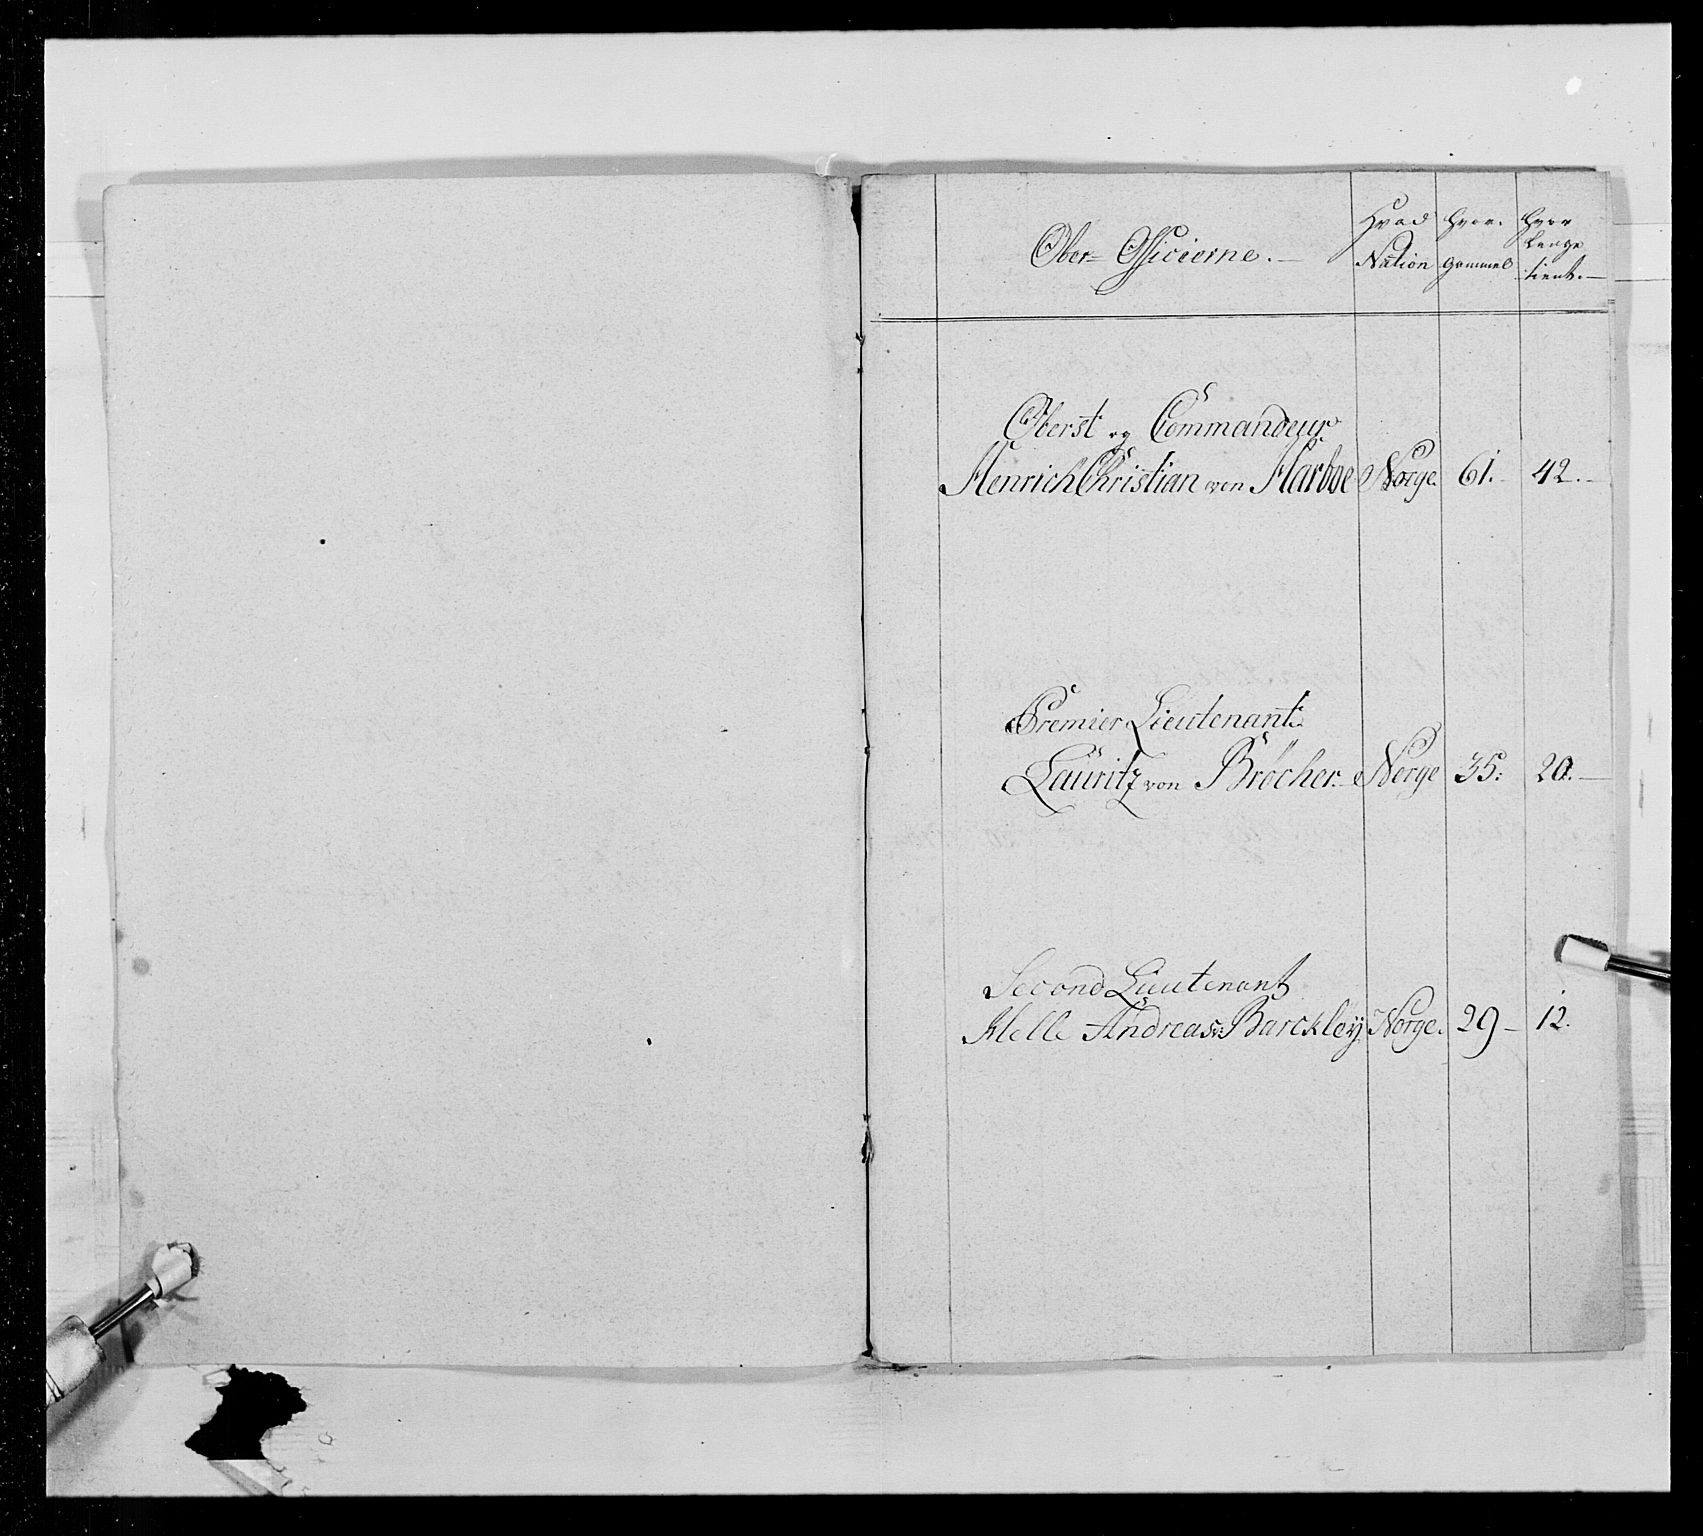 Ober- Officierne. — Hvad Nation Hvor gammel Hvor Lenge tient. —
Oberst og Commandeur
Henrich Christian von Harboe Norge. 61. - 42. -
Premier Lieutenant
Lauritz von Bröcher. Norge 35: 20. —
Second Lieutenant
Melle Andreas v: Barckley. Norge. 29 — 12.